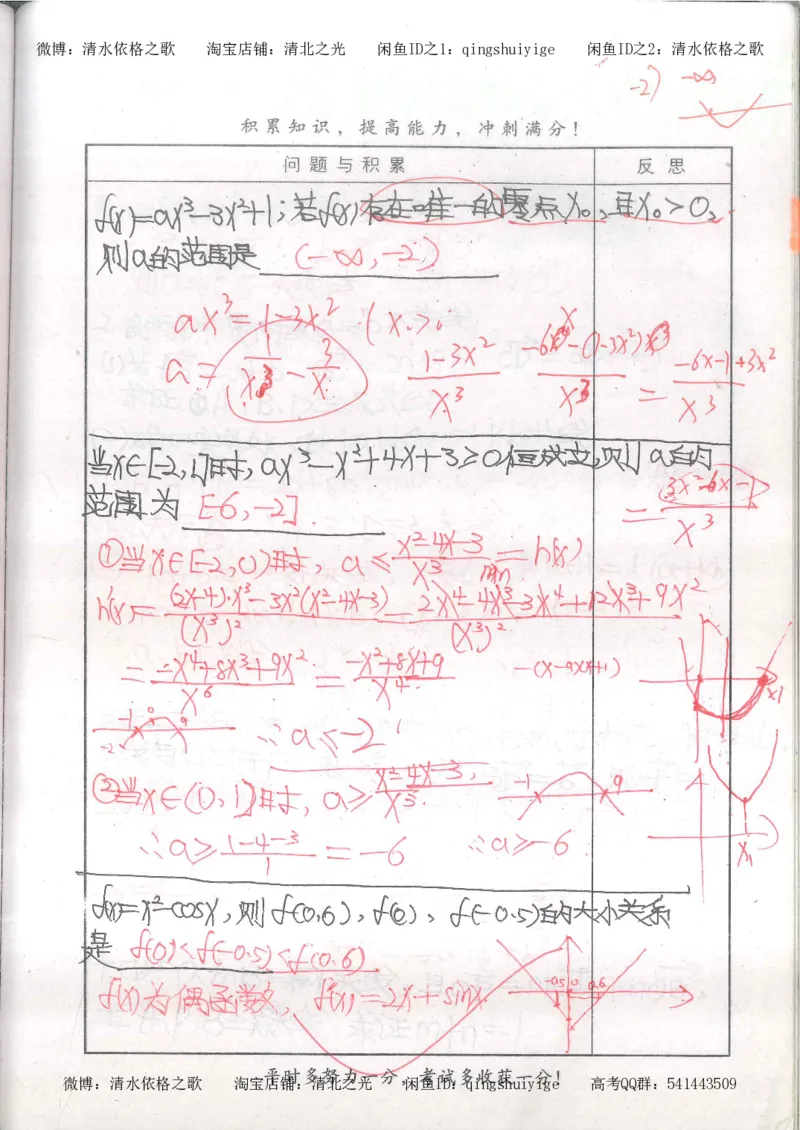 微博：清水依格之歌 淘宝店铺：清北之光 闲鱼ID之1：qingshuiyige 闲鱼ID之2：清水依格之歌
-2) -∞
积累知识，提高能力，冲刺满分！
问题与积累 反思
f(x)=ax³-3x²+1；若f(x)存在唯一的零点x₀，且x₀>0，
则a的范围是 (-∞,-2)
ax³=1-3x² (x>0
a=1/x³-3/x
(1-3x²)/x³
=(-6x-1+3x²)/x³
当x∈[-2,1]时，ax³-x²+4x+3≥0恒成立，则a的
范围为 [-6,-2].
=(3x²-6x-1)/x³
①当x∈[-2,0)时，a≤(x²-4x-3)/x³ min=h(x)
h'(x)=((2x-4)·x³-3x²(x²-4x-3))/(x³)²=(2x⁴-4x³-3x⁴+12x³+9x²)/(x³)²
=(-x⁴+8x³+9x²)/x⁶=(-x²+8x+9)/x⁴ -(x-9)(x+1)
-2 -1 0 9 ∴a≤-2
x1
②当x∈(0,1]时，a≥(x²-4x-3)/x³. -1 9
∴a≥(1-4-3)/1=-6 ∴a≥-6
x₁
f(x)=x²-cosx，则f(0.6)，f(0)，f(-0.5)的大小关系
是 f(0)<f(-0.5)<f(0.6)
f(x)为偶函数，f'(x)=2x+sinx. -0.5 0 0.6
平时多努力一分，考试多收获一分！
微博：清水依格之歌 淘宝店铺：清北之光 闲鱼ID之1：qingshuiyige 高考QQ群：541443509